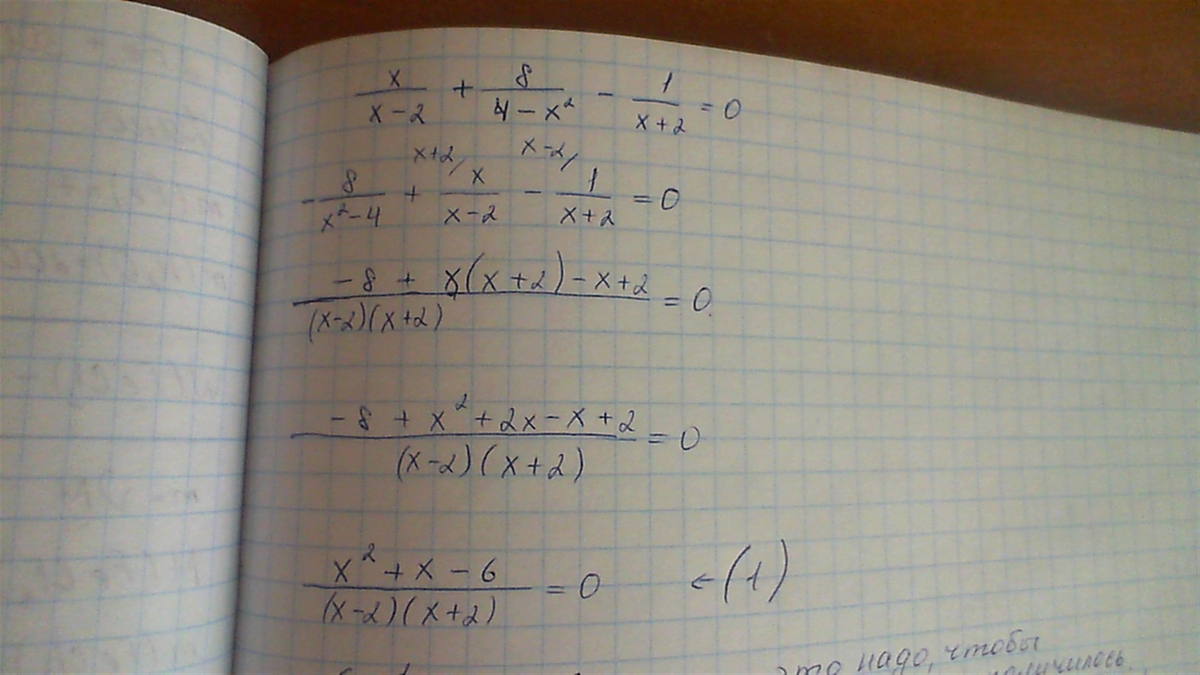 x/(x-2) + 8/(4-x²) - 1/(x+2) = 0
x+2/ x-2/
-8/(x²-4) + x/(x-2) - 1/(x+2) = 0
(-8 + x(x+2) - x+2)/((x-2)(x+2)) = 0
(-8 + x² + 2x - x + 2)/((x-2)(x+2)) = 0
(x² + x - 6)/((x-2)(x+2)) = 0 ← (1)
это надо, чтобы
получилось